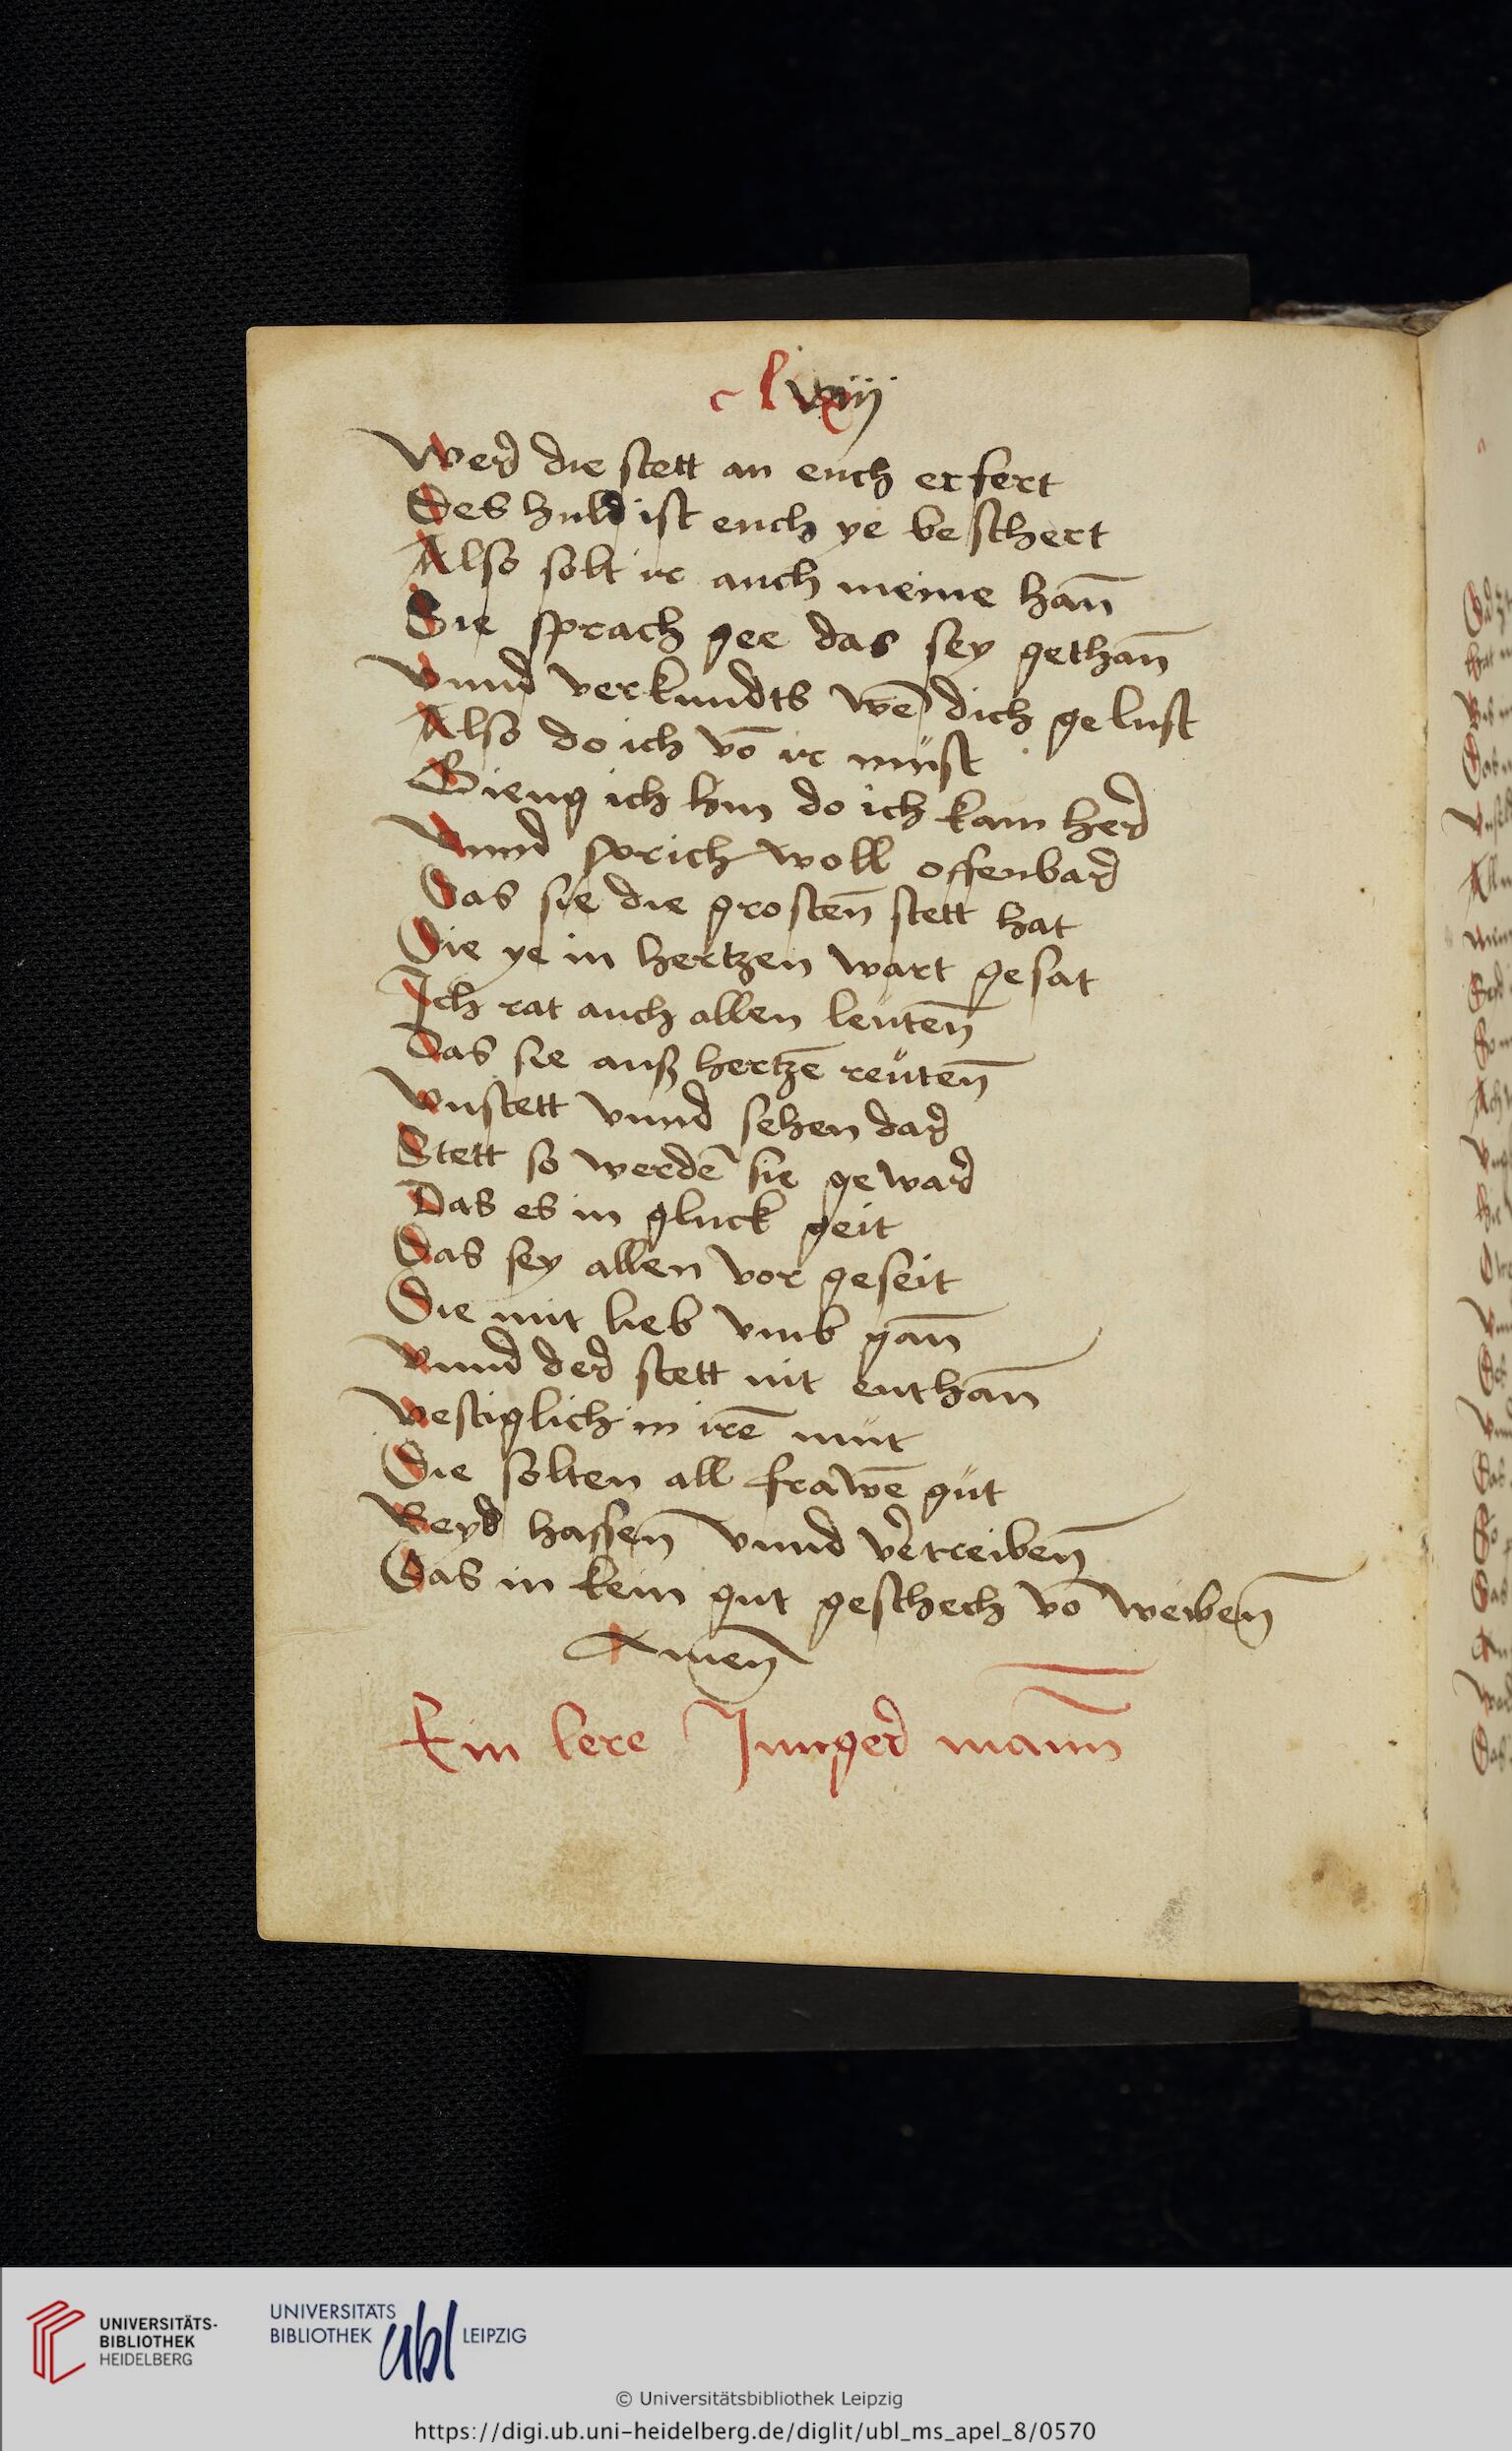 Werd die stett an euch erfert
Des huld ist euch ye beschert
Also solt ir auch meine han̄
Sie sprach gee das sey gethan̄
Vnnd verkundts wē dich gelust
Also do ich vō ir müst
Gieng ich hin do ich kam herd
Vnnd sprich woll offenbard
Das sie die grosten̄ stett hat
Die ye in hertzen wart gesat
Ich rat auch allen leüten̄
Das sie auß hertzē reüten̄
Vnstett vnnd sehen dard
Stett so werdē sie geward
Das es in gluck geit
Das sey allen vor geseit
Die mit lieb vmb gan̄
Vnnd derd stett nit enthan̄
Vestiglich in irē müt
Die solten all frawē güt
Beyd hassen̄ vnnd vertreiben̄
Das in kein gut geschech vō weiben̄
Amen̄
Ein lere Jungerd mann̄
UNIVERSITÄTS-
BIBLIOTHEK
HEIDELBERG
UNIVERSITÄTS
BIBLIOTHEK ubl LEIPZIG
© Universitätsbibliothek Leipzig
https://digi.ub.uni-heidelberg.de/diglit/ubl_ms_apel_8/0570